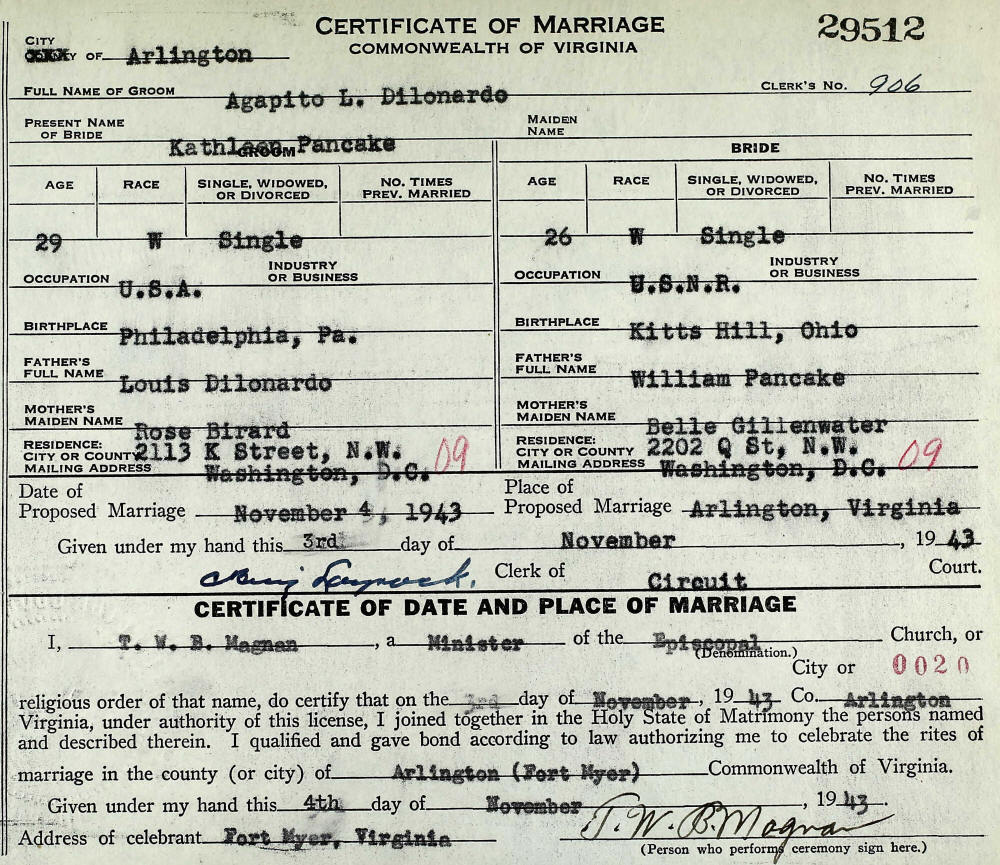 CERTIFICATE OF MARRIAGE
COMMONWEALTH OF VIRGINIA
29512
CITY
COUNTY OF Arlington
FULL NAME OF GROOM Agapito L. Dilonardo CLERK'S NO. 906
PRESENT NAME OF BRIDE Kathleen Pancake MAIDEN NAME
GROOM BRIDE
AGE RACE SINGLE, WIDOWED, OR DIVORCED NO. TIMES PREV. MARRIED AGE RACE SINGLE, WIDOWED, OR DIVORCED NO. TIMES PREV. MARRIED
29 W Single 26 W Single
OCCUPATION U.S.A. INDUSTRY OR BUSINESS OCCUPATION U.S.N.R. INDUSTRY OR BUSINESS
BIRTHPLACE Philadelphia, Pa. BIRTHPLACE Kitts Hill, Ohio
FATHER'S FULL NAME Louis Dilonardo FATHER'S FULL NAME William Pancake
MOTHER'S MAIDEN NAME Rose Birard MOTHER'S MAIDEN NAME Belle Gillenwater
RESIDENCE: CITY OR COUNTY MAILING ADDRESS 2113 K Street, N.W. Washington, D.C. 09 RESIDENCE: CITY OR COUNTY MAILING ADDRESS 2202 Q St, N.W. Washington, D.C. 09
Date of Proposed Marriage November 4, 1943 Place of Proposed Marriage Arlington, Virginia
Given under my hand this 3rd day of November, 1943
Clerk of Circuit Court.
CERTIFICATE OF DATE AND PLACE OF MARRIAGE
I, T. W. B. Magnan, a Minister of the Episcopal Church, or
(Denomination.)
City or 0020
religious order of that name, do certify that on the 3rd day of November, 1943 Co. Arlington
Virginia, under authority of this license, I joined together in the Holy State of Matrimony the persons named
and described therein. I qualified and gave bond according to law authorizing me to celebrate the rites of
marriage in the county (or city) of Arlington (Fort Myer) Commonwealth of Virginia.
Given under my hand this 4th day of November, 1943.
Address of celebrant Fort Myer, Virginia T. W. B. Magnan
(Person who performs ceremony sign here.)